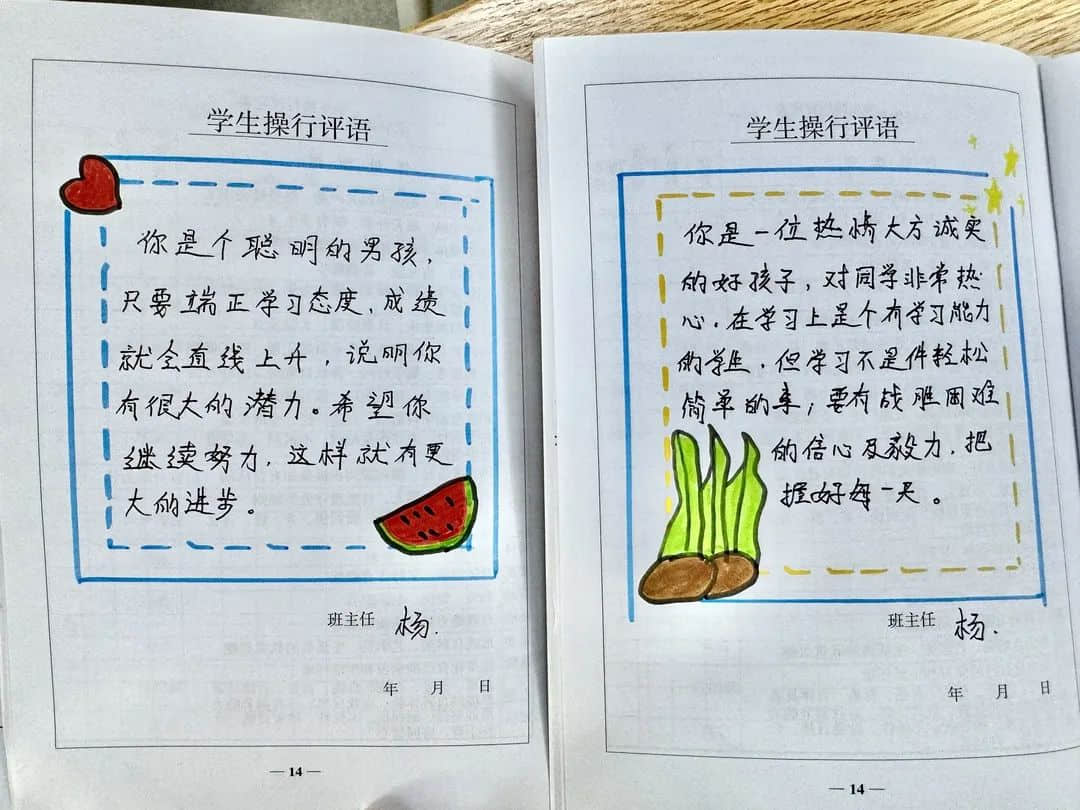 学生操行评语
你是个聪明的男孩，
只要端正学习态度，成绩
就会直线上升，说明你
有很大的潜力。希望你
继续努力，这样就有更
大的进步。
班主任 杨.
年 月 日
— 14 —
学生操行评语
你是一位热情大方诚实
的好孩子，对同学非常热
心，在学习上是个有学习能力
的学生，但学习不是件轻松
简单的事，要有战胜困难
的信心及毅力，把
握好每一天。
班主任 杨.
年 月 日
— 14 —